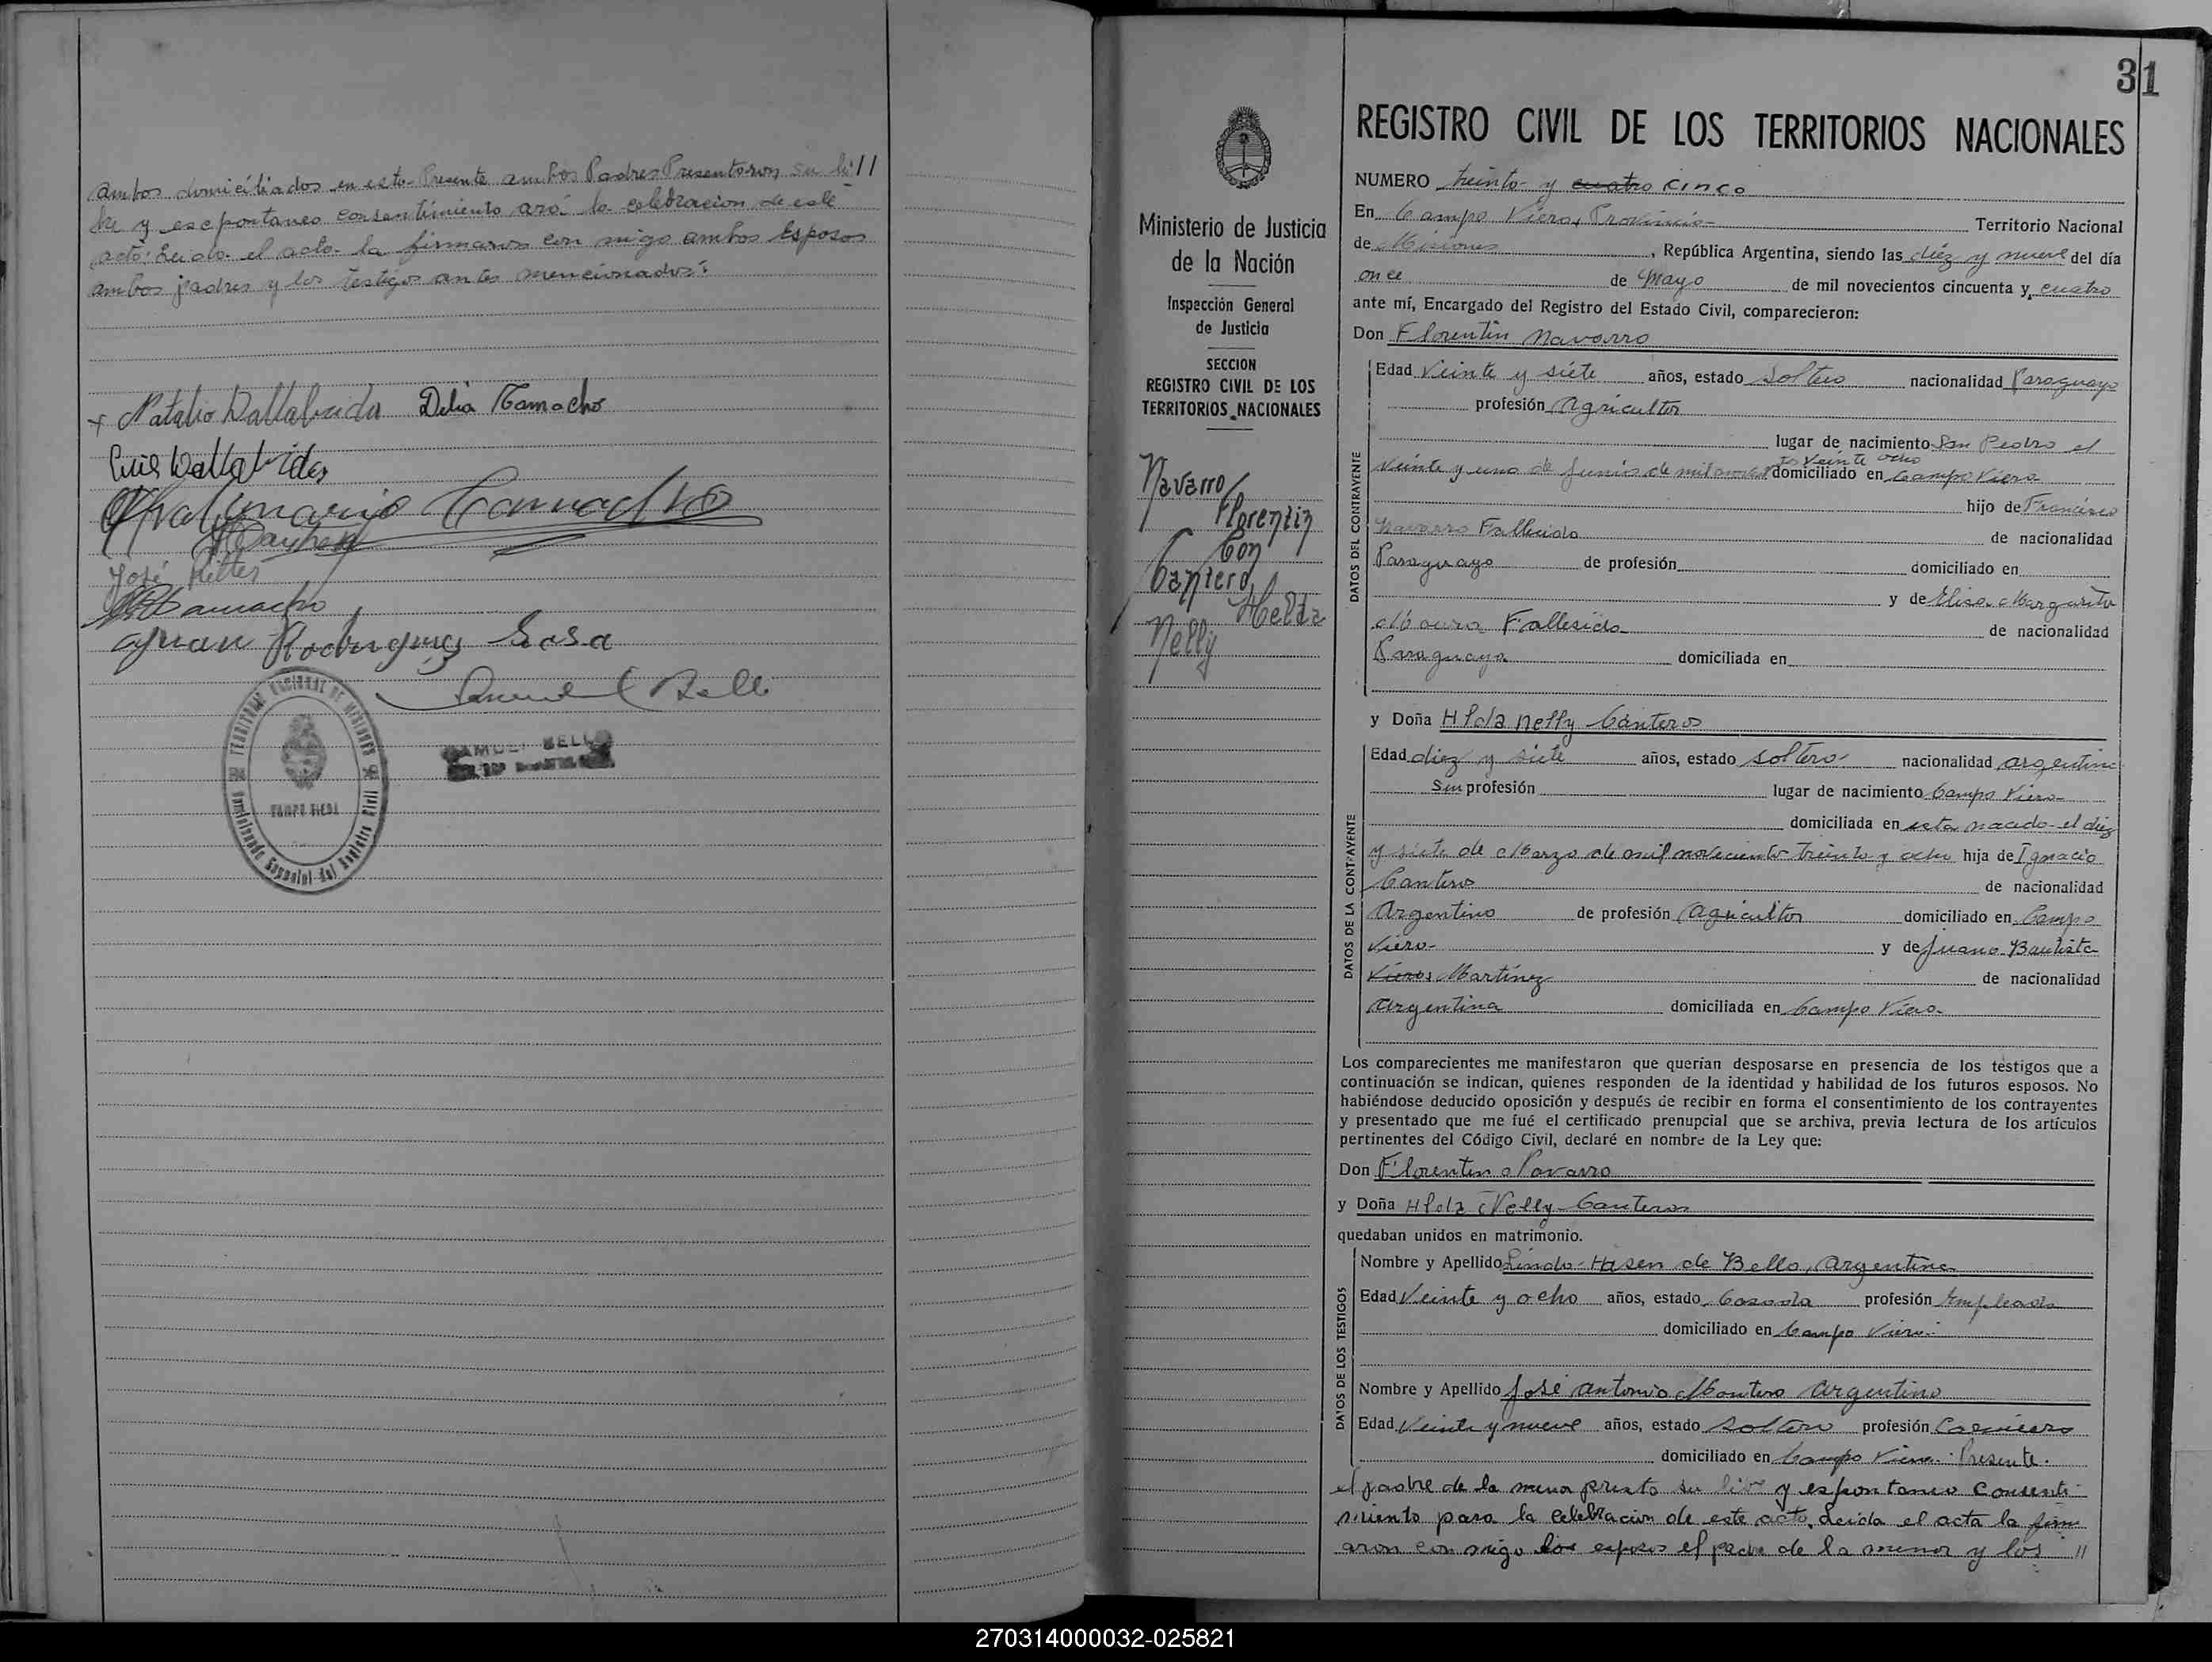 ambos domiciliados en esta Presente ambos Padres Presentaron su li//
bre y esepontaneo consentimiento ará la celebracion de este
acto: Leida el acta la firmaron con migo ambos Esposos
ambos padres y los testigos antes mencionados:
+ Natalio Dallabrida Delia Camacho
Luis Dallabrida
Camacho
José Ritter
Juan Rodriguez Sosa
Samuel Bello
TERRITORIO NACIONAL DE MISIONES
CAMPO VIERA
SAMUEL BELLO
31
Ministerio de Justicia
de la Nación
Inspección General
de Justicia
SECCION
REGISTRO CIVIL DE LOS
TERRITORIOS NACIONALES
Navarro
Florentin
Con
Cantero
Helda
Nelly
REGISTRO CIVIL DE LOS TERRITORIOS NACIONALES
NUMERO treinta y cuatro cinco
En Campo Viera, Provincia Territorio Nacional
de Misiones, República Argentina, siendo las diéz y nueve del día
once de Mayo de mil novecientos cincuenta y cuatro
ante mí, Encargado del Registro del Estado Civil, comparecieron:
Don Florentin Navarro
DATOS DEL CONTRAYENTE
Edad Veinte y siéte años, estado Soltero nacionalidad Paraguayo
profesión Agricultor
lugar de nacimiento San Pedro el
tos veinte ocho
veinte y uno de Junio de mil novecien domiciliado en Campo Viera
hijo de Francisco
Navarro Fallecido de nacionalidad
Paraguayo de profesión domiciliado en
y de Elisa Margarita
Fallesida de nacionalidad
Paraguaya domiciliada en
y Doña Hlda Nelly Cánteros
DATOS DE LA CONTRAYENTE
Edad diez y siete años, estado soltera nacionalidad argentina
Sin profesión lugar de nacimiento Campo Viera
domiciliada en esta nacida el diez
y siete de Marzo de mil novecientos treinta y ocho hija de Ignacio
Canteros de nacionalidad
Argentino de profesión Agricultor domiciliado en Campo
Viera y de Juana Bautista
Martínez de nacionalidad
Argentina domiciliada en Campo Viera
Los comparecientes me manifestaron que querían desposarse en presencia de los testigos que a
continuación se indican, quienes responden de la identidad y habilidad de los futuros esposos. No
habiéndose deducido oposición y después de recibir en forma el consentimiento de los contrayentes
y presentado que me fué el certificado prenupcial que se archiva, previa lectura de los artículos
pertinentes del Código Civil, declaré en nombre de la Ley que:
Don Florentin Navarro
y Doña Hlda Nelly Canteros
quedaban unidos en matrimonio.
DATOS DE LOS TESTIGOS
Nombre y Apellido Linda Hasen de Bello, Argentina
Edad Veinte y ocho años, estado Casada profesión Empleada
domiciliado en Campo Viera
Nombre y Apellido José Antonio Montero Argentino
Edad Veinte y nueve años, estado soltero profesión Carnicero
domiciliado en Campo Viera. Presente.
el padre de la menor presto su libre y espontaneo consenti
miento para la celebracion de este acto. Leida el acta la firm
aron con migo los esposos el padre de la menor y los //
270314000032-025821